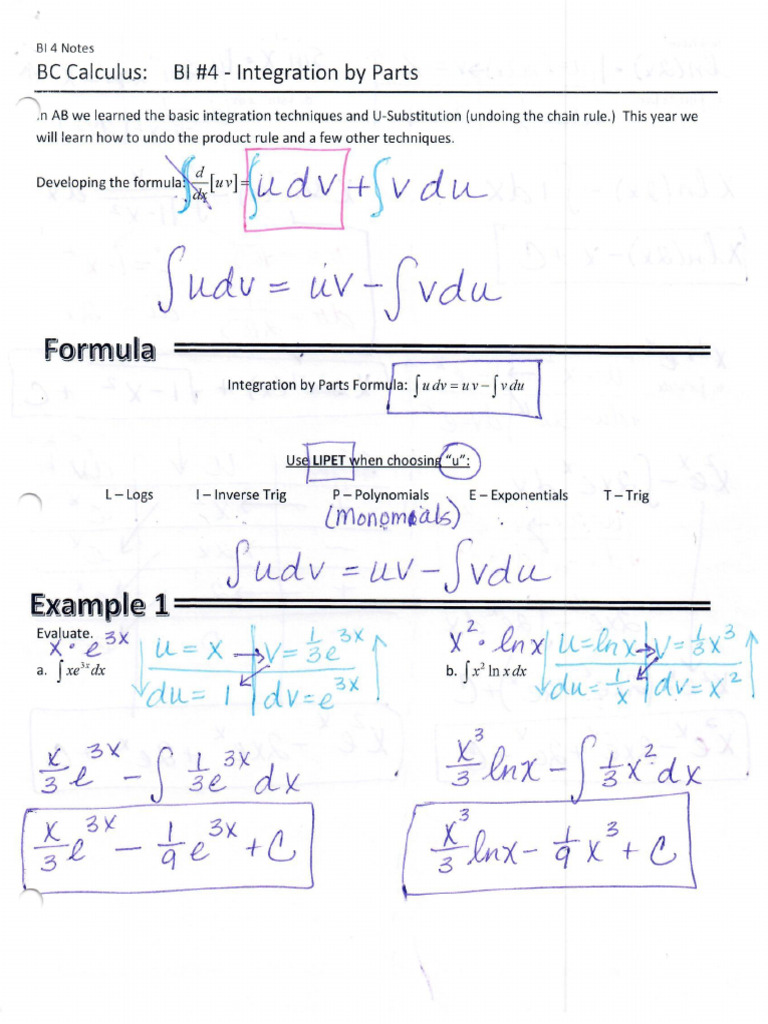 BI 4 Notes
BC Calculus: BI #4 - Integration by Parts
.n AB we learned the basic integration techniques and U-Substitution (undoing the chain rule.) This year we
will learn how to undo the product rule and a few other techniques.
Developing the formula: ∫ d/dx [u v] = ∫ u dv + ∫ v du
∫ u dv = uv − ∫ v du
Formula
Integration by Parts Formula: ∫ u dv = u v − ∫ v du
Use LIPET when choosing "u":
L – Logs I – Inverse Trig P – Polynomials E – Exponentials T – Trig
(Monomials)
∫ u dv = uv − ∫ v du
Example 1
Evaluate.
x · e^3x u = x v = 1/3 e^3x
a. ∫ xe^3x dx du = 1 dv = e^3x
x/3 e^3x − ∫ 1/3 e^3x dx
x/3 e^3x − 1/9 e^3x + C
x² · ln x u = ln x v = 1/3 x³
b. ∫ x² ln x dx du = 1/x dv = x²
x³/3 ln x − ∫ 1/3 x² dx
x³/3 ln x − 1/9 x³ + C